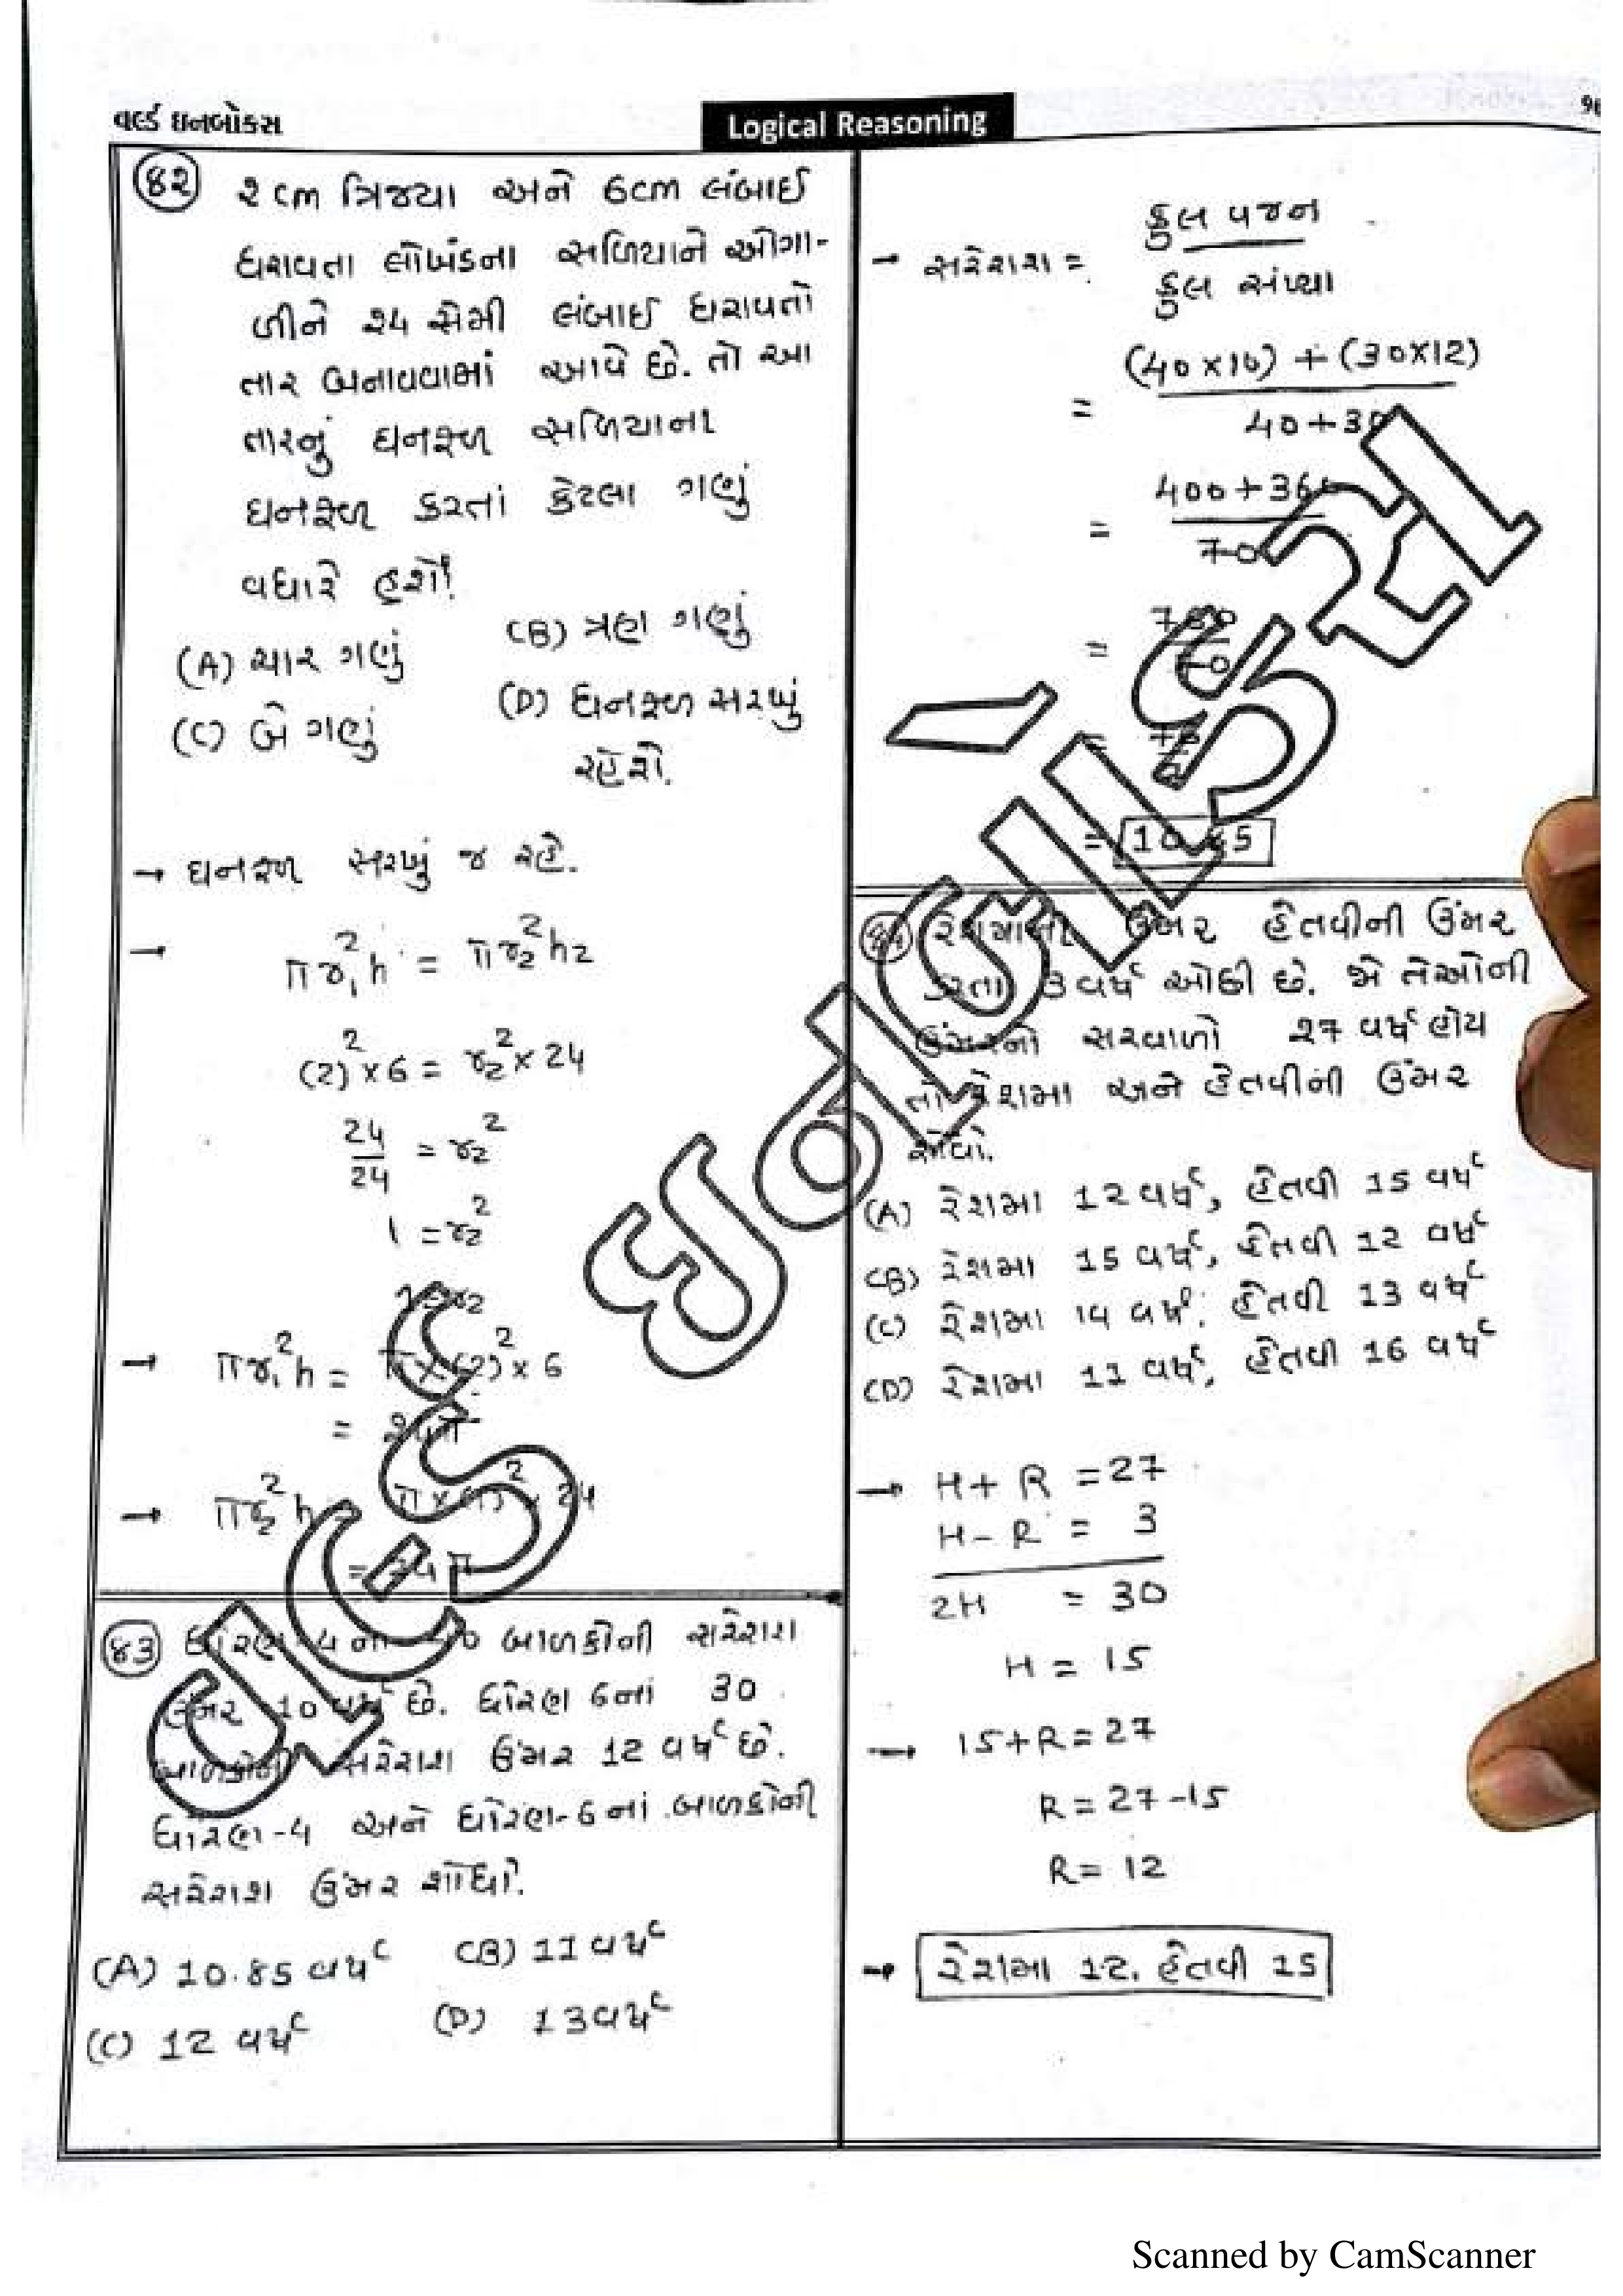 વર્લ્ડ ઇનબોક્સ
Logical Reasoning
(82) 2 cm ત્રિજ્યા અને 6cm લંબાઈ
ધરાવતા લોખંડના સળિયાને ઓગા-
ળીને 24 સેમી લંબાઈ ધરાવતો
તાર બનાવવામાં આવે છે. તો આ
તારનું ઘનફળ સળિયાના
ઘનફળ કરતાં કેટલા ગણું
વધારે હશે!
(A) ચાર ગણું (B) ત્રણ ગણું
(C) બે ગણું (D) ઘનફળ સરખું
રહેશે.
→ ઘનફળ સરખું જ રહે.
→ πr₁²h = πr₂²h₂
(2)² × 6 = r₂² × 24
24/24 = r₂²
1 = r₂²
1 = r₂
→ πr₁²h = π × (2)² × 6
= 24π
→ πr₂²h = π × (1)² × 24
= 24π
(83) ધોરણ-4 નાં 40 બાળકોની સરેરાશ
ઉંમર 10 વર્ષ છે. ધોરણ 6નાં 30
બાળકોની સરેરાશ ઉંમર 12 વર્ષ છે.
ધોરણ-4 અને ધોરણ-6નાં બાળકોની
સરેરાશ ઉંમર શોધો.
(A) 10.85 વર્ષ (B) 11 વર્ષ
(C) 12 વર્ષ (D) 13 વર્ષ
→ સરેરાશ = કુલ વજન
કુલ સંખ્યા
= (40×10) + (30×12)
40+30
= 400+360
70
= 760
70
= 76
7
= 10.85
(84) રેશમાની ઉંમર હેતવીની ઉંમર
કરતા 3 વર્ષ ઓછી છે. જો તેઓની
ઉંમરનો સરવાળો 27 વર્ષ હોય
તો રેશમા અને હેતવીની ઉંમર
શોધો.
(A) રેશમા 12 વર્ષ, હેતવી 15 વર્ષ
(B) રેશમા 15 વર્ષ, હેતવી 12 વર્ષ
(C) રેશમા 14 વર્ષ, હેતવી 13 વર્ષ
(D) રેશમા 11 વર્ષ, હેતવી 16 વર્ષ
→ H + R = 27
H - R = 3
2H = 30
H = 15
→ 15+R=27
R = 27-15
R = 12
→ રેશમા 12, હેતવી 15
Scanned by CamScanner